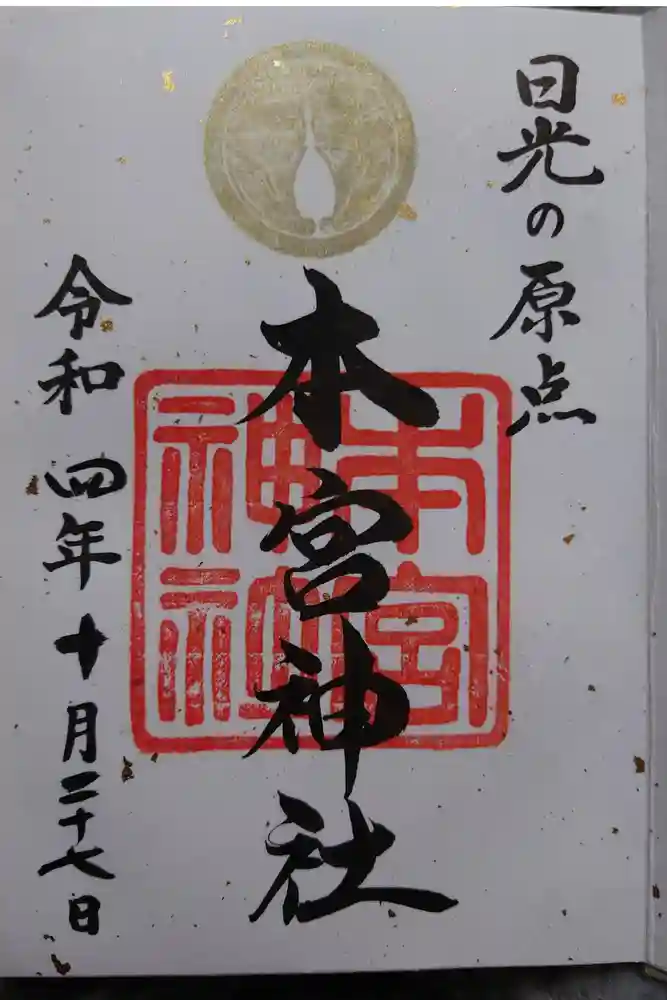 日光の原点
本宮神社
本宮
神社
令和四年十月二十七日